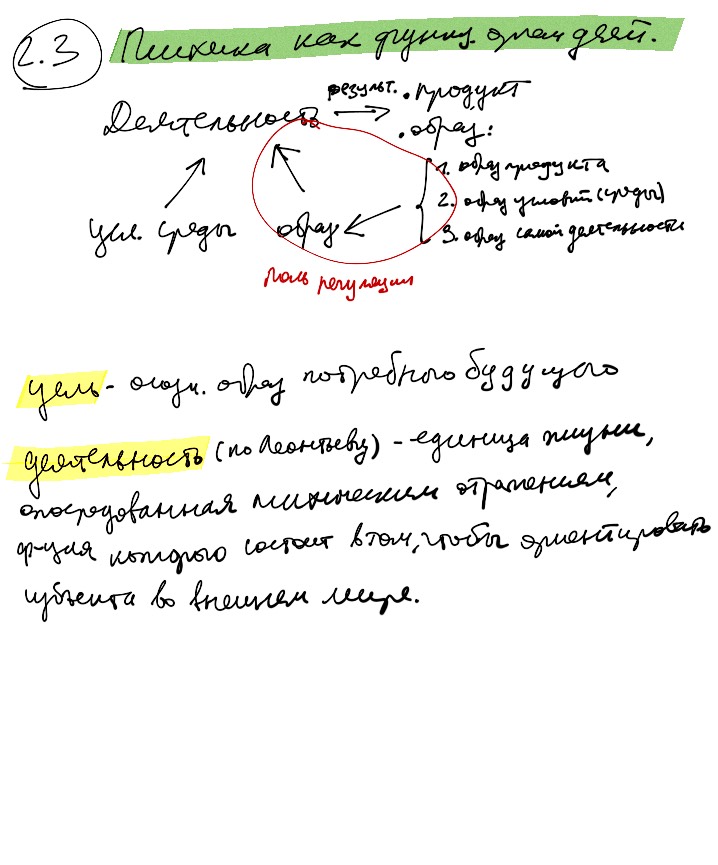 2.3 Психика как функц. орган деят.
результ. . продукт
Деятельность . образ:
1. образ продукта
2. образ условий (среды)
усл. среды образ
3. образ самой деятельности
роль регуляции
цель - осозн. образ потребного будущего
деятельность (по Леонтьеву) - единица жизни,
опосредованная психическим отражением,
ф-ция которого состоит в том, чтобы ориентировать
субъекта во внешнем мире.